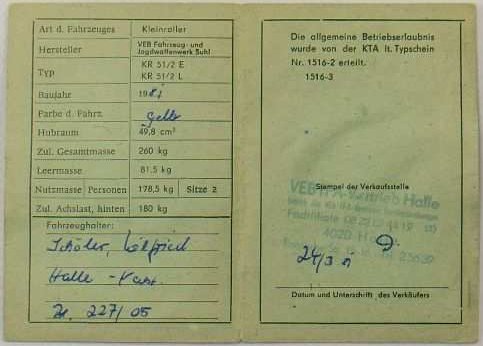 Art d. Fahrzeuges Kleinroller
Hersteller VEB Fahrzeug- und Jagdwaffenwerk Suhl
Typ KR 51/2 E
KR 51/2 L
Baujahr 1981
Farbe d. Fahrz. gelb
Hubraum 49,8 cm³
Zul. Gesamtmasse 260 kg
Leermasse 81,5 kg
Nutzmasse Personen 178,5 kg Sitze 2
Zul. Achslast, hinten 180 kg
Fahrzeughalter:
Halle -
Nr. 227/05
Die allgemeine Betriebserlaubnis
wurde von der KTA lt. Typschein
Nr. 1516-2 erteilt.
1516-3
Stempel der Verkaufsstelle
VEB IFA-Vertrieb Halle
Fachfiliale
4020 Halle
Datum und Unterschrift des Verkäufers